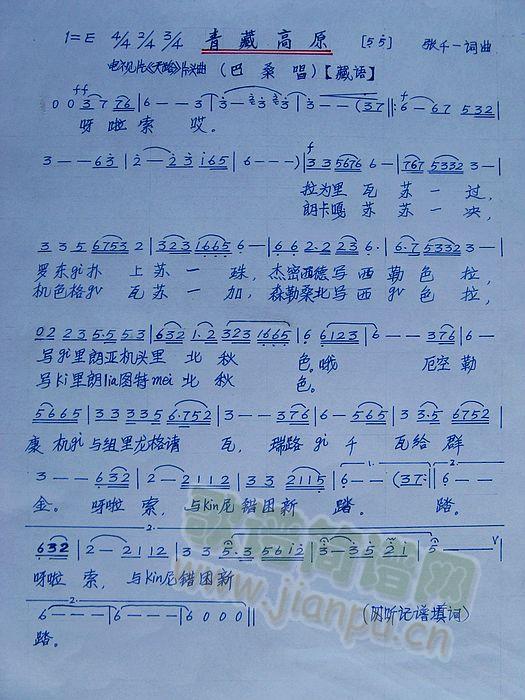 1=E 4/4 2/4 3/4 青藏高原 [5 5] 张千一词曲
电视片《天路》片头曲 (巴桑唱)【藏语】
ff f
0 0 3 7 76 | 6 - - 3 | 3 - 3 3 3 | 3 - - (37 |: 6 - 67 532 |
呀啦索 哎。
3 - - 63 | 2 - 23 165 | 6 - - -) | 3 3 5676 6 - | 767 5332 3 - |
拉为里瓦苏一过,
朗卡嘎苏苏一决,
3 3 5 6753 2 | 323 1665 6 - | 6 6 2·2 23 6 · | 6·7 5332 3 - |
罗东gi扑上苏一珠,杰密西德写西勒色拉,
机色格gv瓦苏一加,森勒桑北写西gv色拉,
02 23 5·5 53 | 632 1·2 323 1665 | 6 6123 6 - | 6 - - 376 | 6 - -
写gi里朗亚机头里北秋色。哦厄空勒
写Ki里朗lia图特mei北秋色。
5665 | 33 3335 6·752 | 3 - - 376 | 6 - 565 | 3 3·5 6752 |
康机gi与组里龙格请瓦,瑞路gi千瓦给群
3 - - 632 | 2 - 2112 | 3 3 2115 | 6 - - (37 :| 6 - - -
金。呀啦索,与Kin尼错因新踏。踏。
632 | 2 - 2112 | 3 3 5·3 5612 | 3 - 35 21 | 5 - - - V
呀啦索,与Kin尼错因新
6 - - - | 6 - - - | 6 0 0 0 || (刚听记谱填词)
踏。
歌谱简谱网
www.jianpu.cn